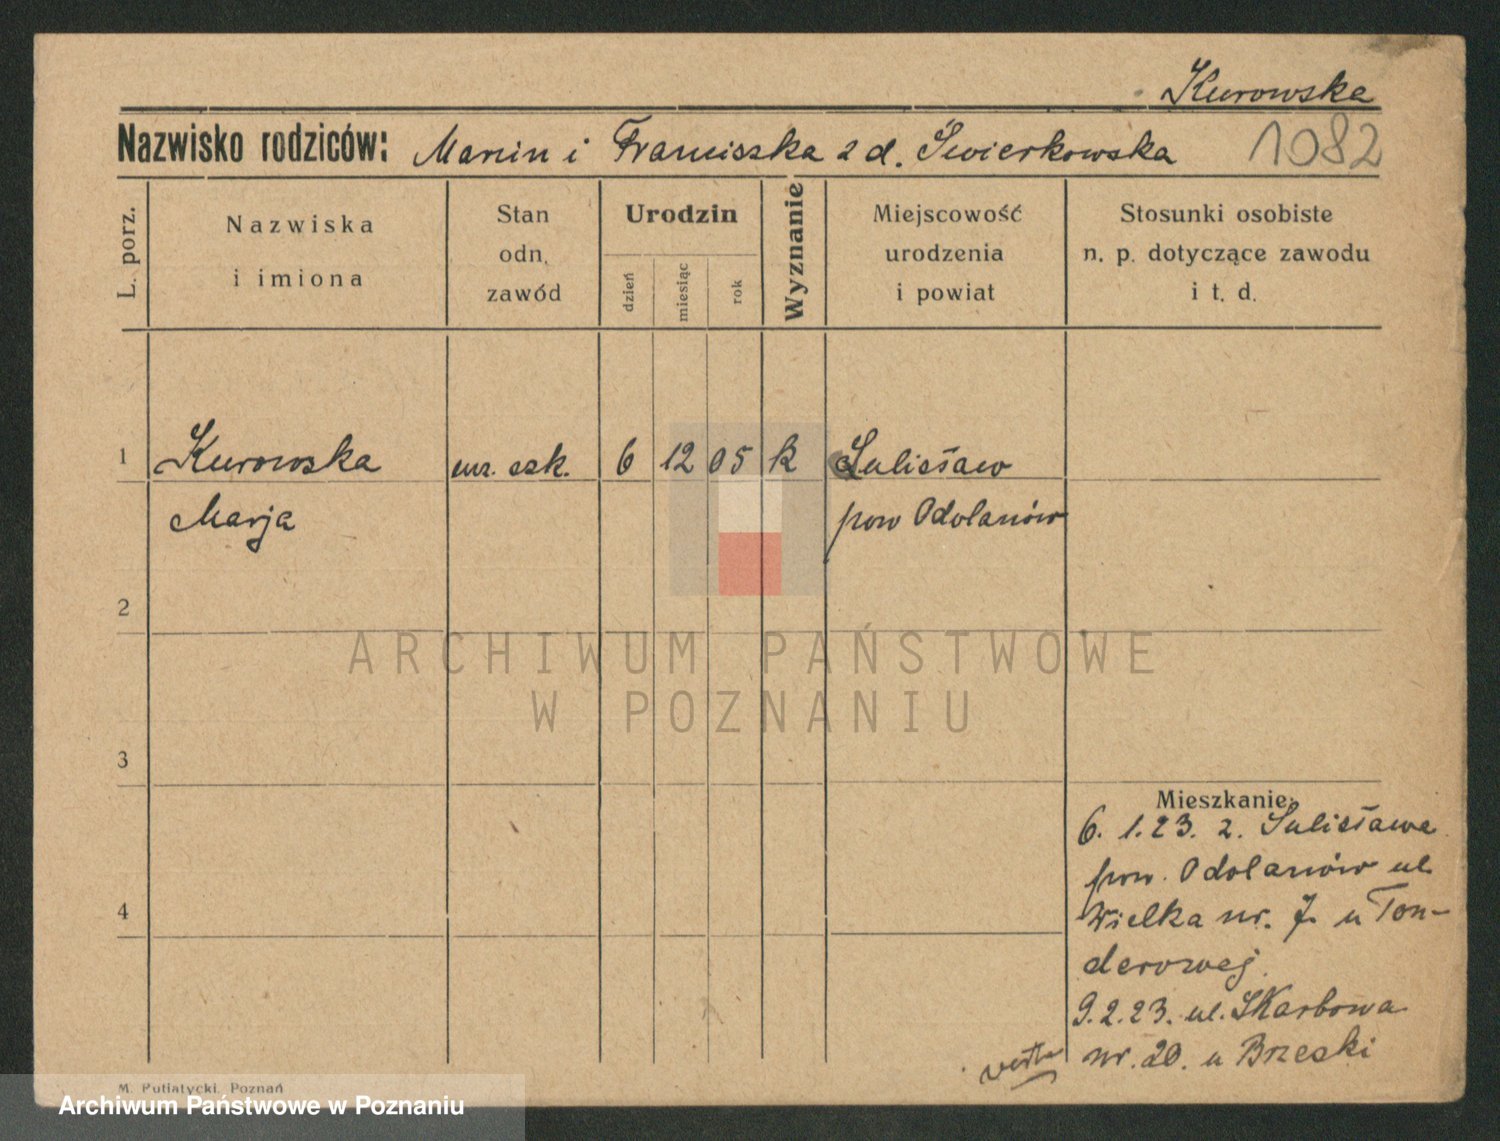 Kurowska
Nazwisko rodziców: Marcin i Franciszka z d. Świerkowska 1082
L. porz.
Nazwiska
i imiona
Stan
odn.
zawód
Urodzin
dzień
miesiąc
rok
Wyznanie
Miejscowość
urodzenia
i powiat
Stosunki osobiste
n. p. dotyczące zawodu
i t. d.
1 Kurowska ucz. szk. 6 12 05 k Sulisław
Marja pow Odolanów
2
3
4
Mieszkanie:
6. 1. 23. z. Sulisława
pow. Odolanów ul.
Wielka nr. 7. u Ton-
derowej.
9. 2. 23. ul. Skarbowa
nr. 20. u Brzeski
M. Putiatycki, Poznań
ARCHIWUM PAŃSTWOWE
W POZNANIU
Archiwum Państwowe w Poznaniu